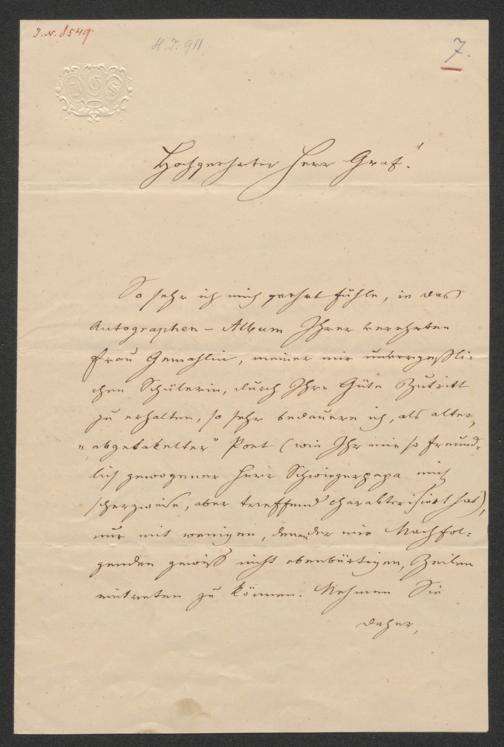 J.N. 8549
H.I. 911
7.
Hochgeehrter Herr Graf!
So sehr ich mich geehrt fühle, in das
Autographen-Album Ihrer verehrten
Frau Gemahlin, meiner mir unvergeßli-
chen Schülerin, durch Ihre Güte Zutritt
zu erhalten, so sehr bedauere ich, als alter,
„abgetakelter" Poet (wie Ihr mir so freund-
lich gewogener Herr Schwiegerpapa mich
scherzweise, aber treffend charakterisirt hat),
nur mit wenigen, denen der mir Nachfol-
genden gewiß nicht ebenbürtigen, Zeilen
eintreten zu können. Nehmen Sie
daher,